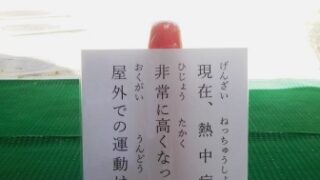 げんざい ねっちゅうしょ
現在、熱中症
ひじょう たかく
非常に高くなっ
おくがい うんどう
屋外での運動は